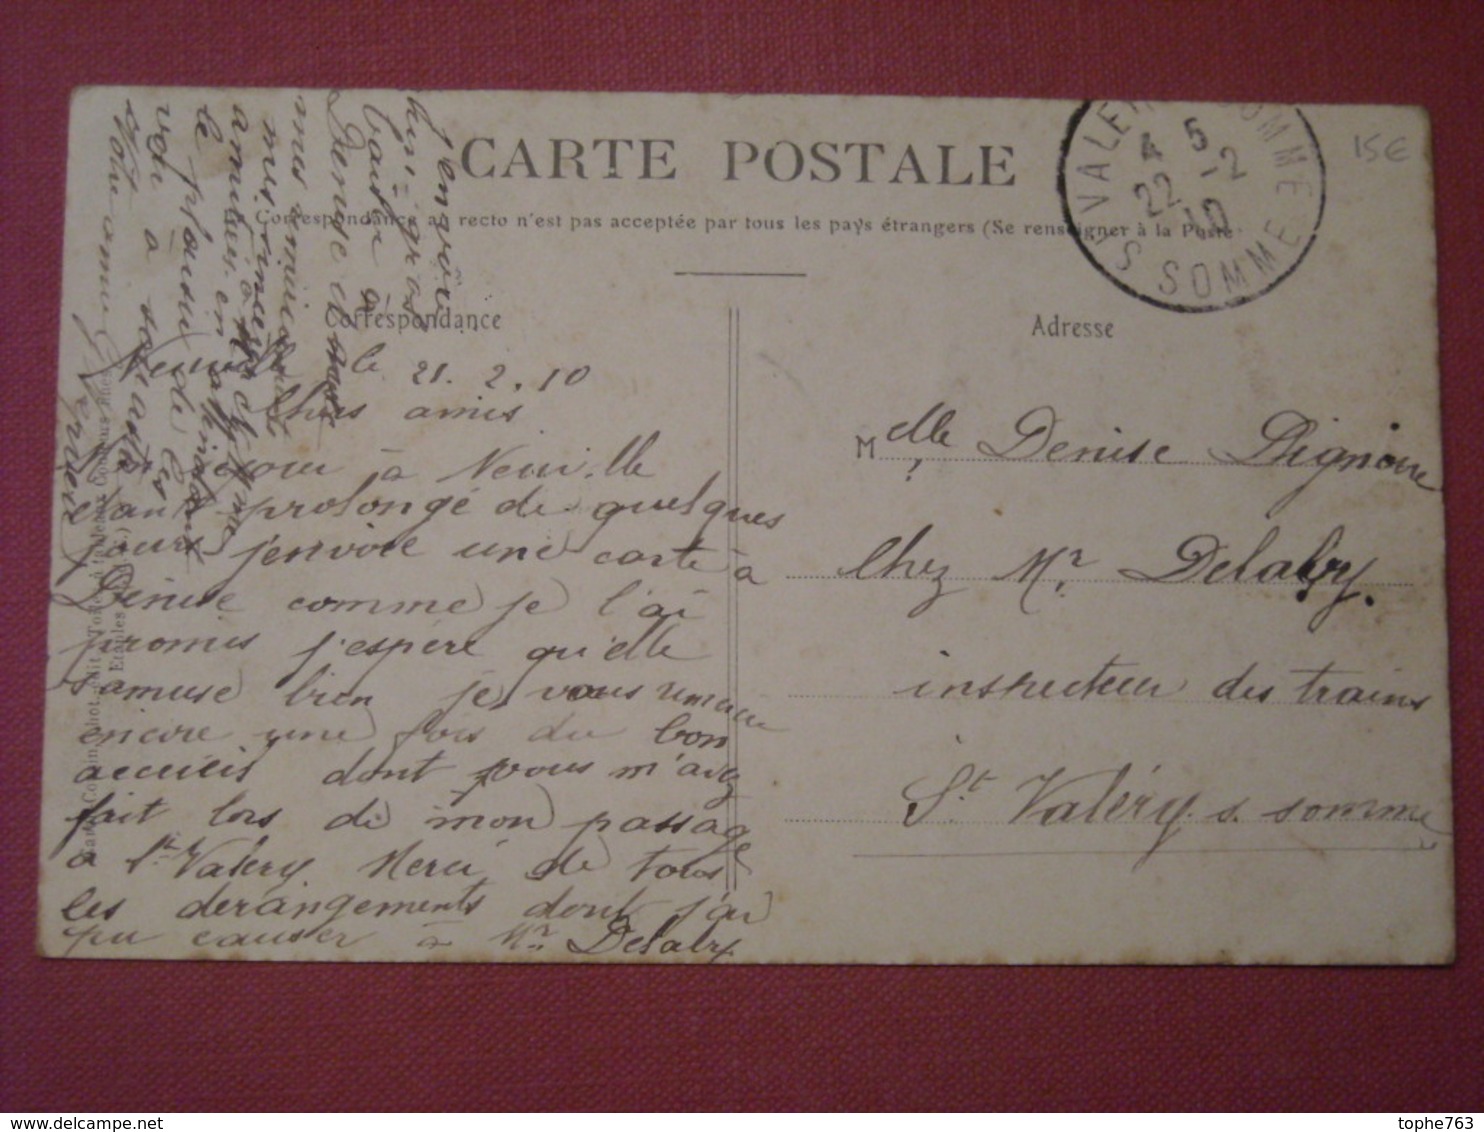 CARTE POSTALE
La Correspondance au recto n'est pas acceptée par tous les pays étrangers (Se renseigner à la Poste
Correspondance
Adresse
15€
VALERY SOMME
4 5
22 - 2
10
SOMME
Neuville le 21.2.10
Chers amis
Mon séjour à Neuville
étant prolongé de quelques
jours j'envoie une carte à
Denise comme je l'ai
promis j'espère qu'elle
s'amuse bien je vous remercie
encore une fois du bon
accueils dont vous m'avez
fait lors de mon passage
à St Valéry Merci de tous
les dérangements dont j'ai
pu causer à Mr. Delabry
J'envoie
un gros
baiser à
Denise et
mes
amities
le plaisir de les
voir à
Votre amie
Melle Denise Pignon
Chez Mr. Delabry.
inspecteur des trains
St. Valéry s. somme
tophe763